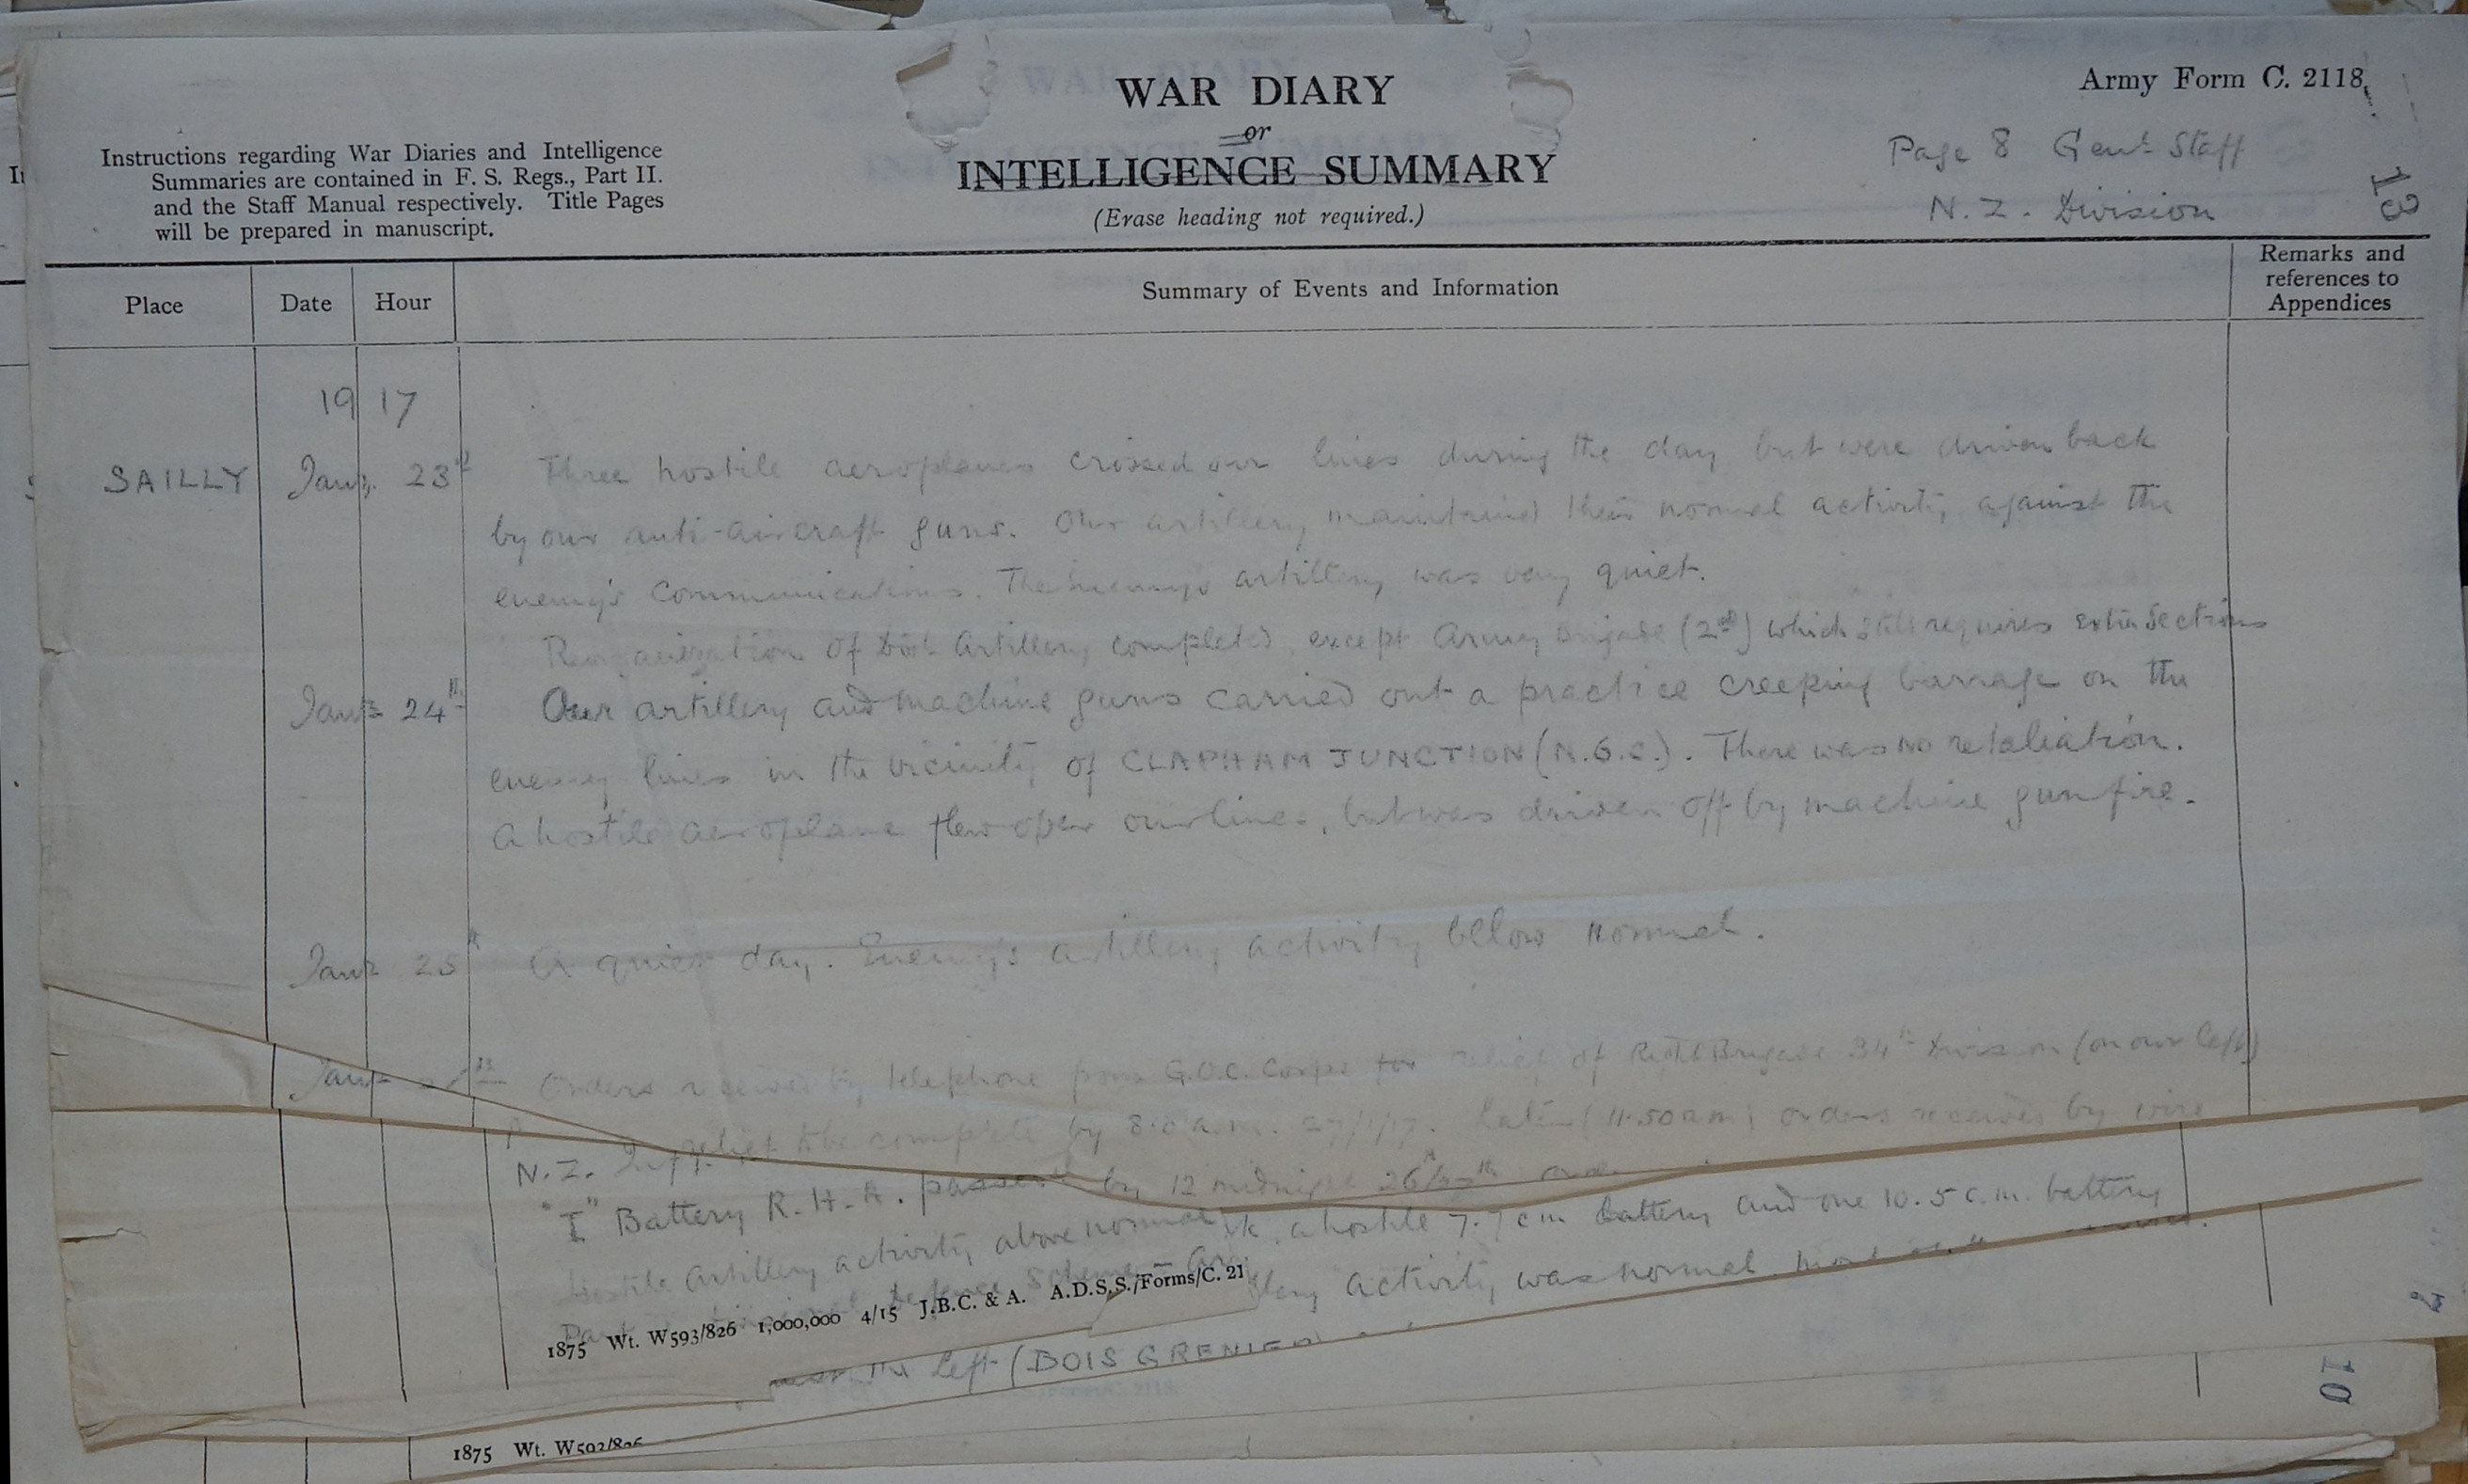 WAR DIARY
or
INTELLIGENCE SUMMARY
(Erase heading not required.)
Army Form C. 2118.
Instructions regarding War Diaries and Intelligence
Summaries are contained in F. S. Regs., Part II.
and the Staff Manual respectively. Title Pages
will be prepared in manuscript.
Page 8 Genl Staff
N. Z. Division
13
Place Date Hour Summary of Events and Information Remarks and references to Appendices
1917
SAILLY Jany. 23rd Three hostile aeroplanes crossed our lines during the day but were driven back
by our anti-aircraft guns. Our artillery maintained their normal activity against the
enemy's communications. The enemy's artillery was very quiet.
Reorganization of Divl Artillery completed except Army Brigade (2nd) which still requires extra sections
Jany 24th Our artillery and machine guns carried out a practice creeping barrage on the
enemy lines in the vicinity of CLAPHAM JUNCTION (N.6.c.). There was no retaliation.
A hostile aeroplane flew over our lines, but was driven off by machine gun fire.
Jany 25th A quiet day. Enemy's artillery activity below normal.
Jany Orders received by telephone from G.O.C. Corps for relief of Right Brigade 34th Division (on our left)
relief to be complete by 8.0 a.m. 27/1/17. Later (11.50 am) orders received by wire
N.Z.
by 12 midnight 26/27th
"I" Battery R.H.A. passed
a hostile 7.7 cm battery and one 10.5 c.m. battery
Hostile Artillery activity above normal
activity was normal
defence scheme
1875 Wt. W593/826 1,000,000 4/15 J.B.C. & A. A.D.S.S./Forms/C. 21
the left (BOIS GRENIER
10
1875 Wt. W593/826